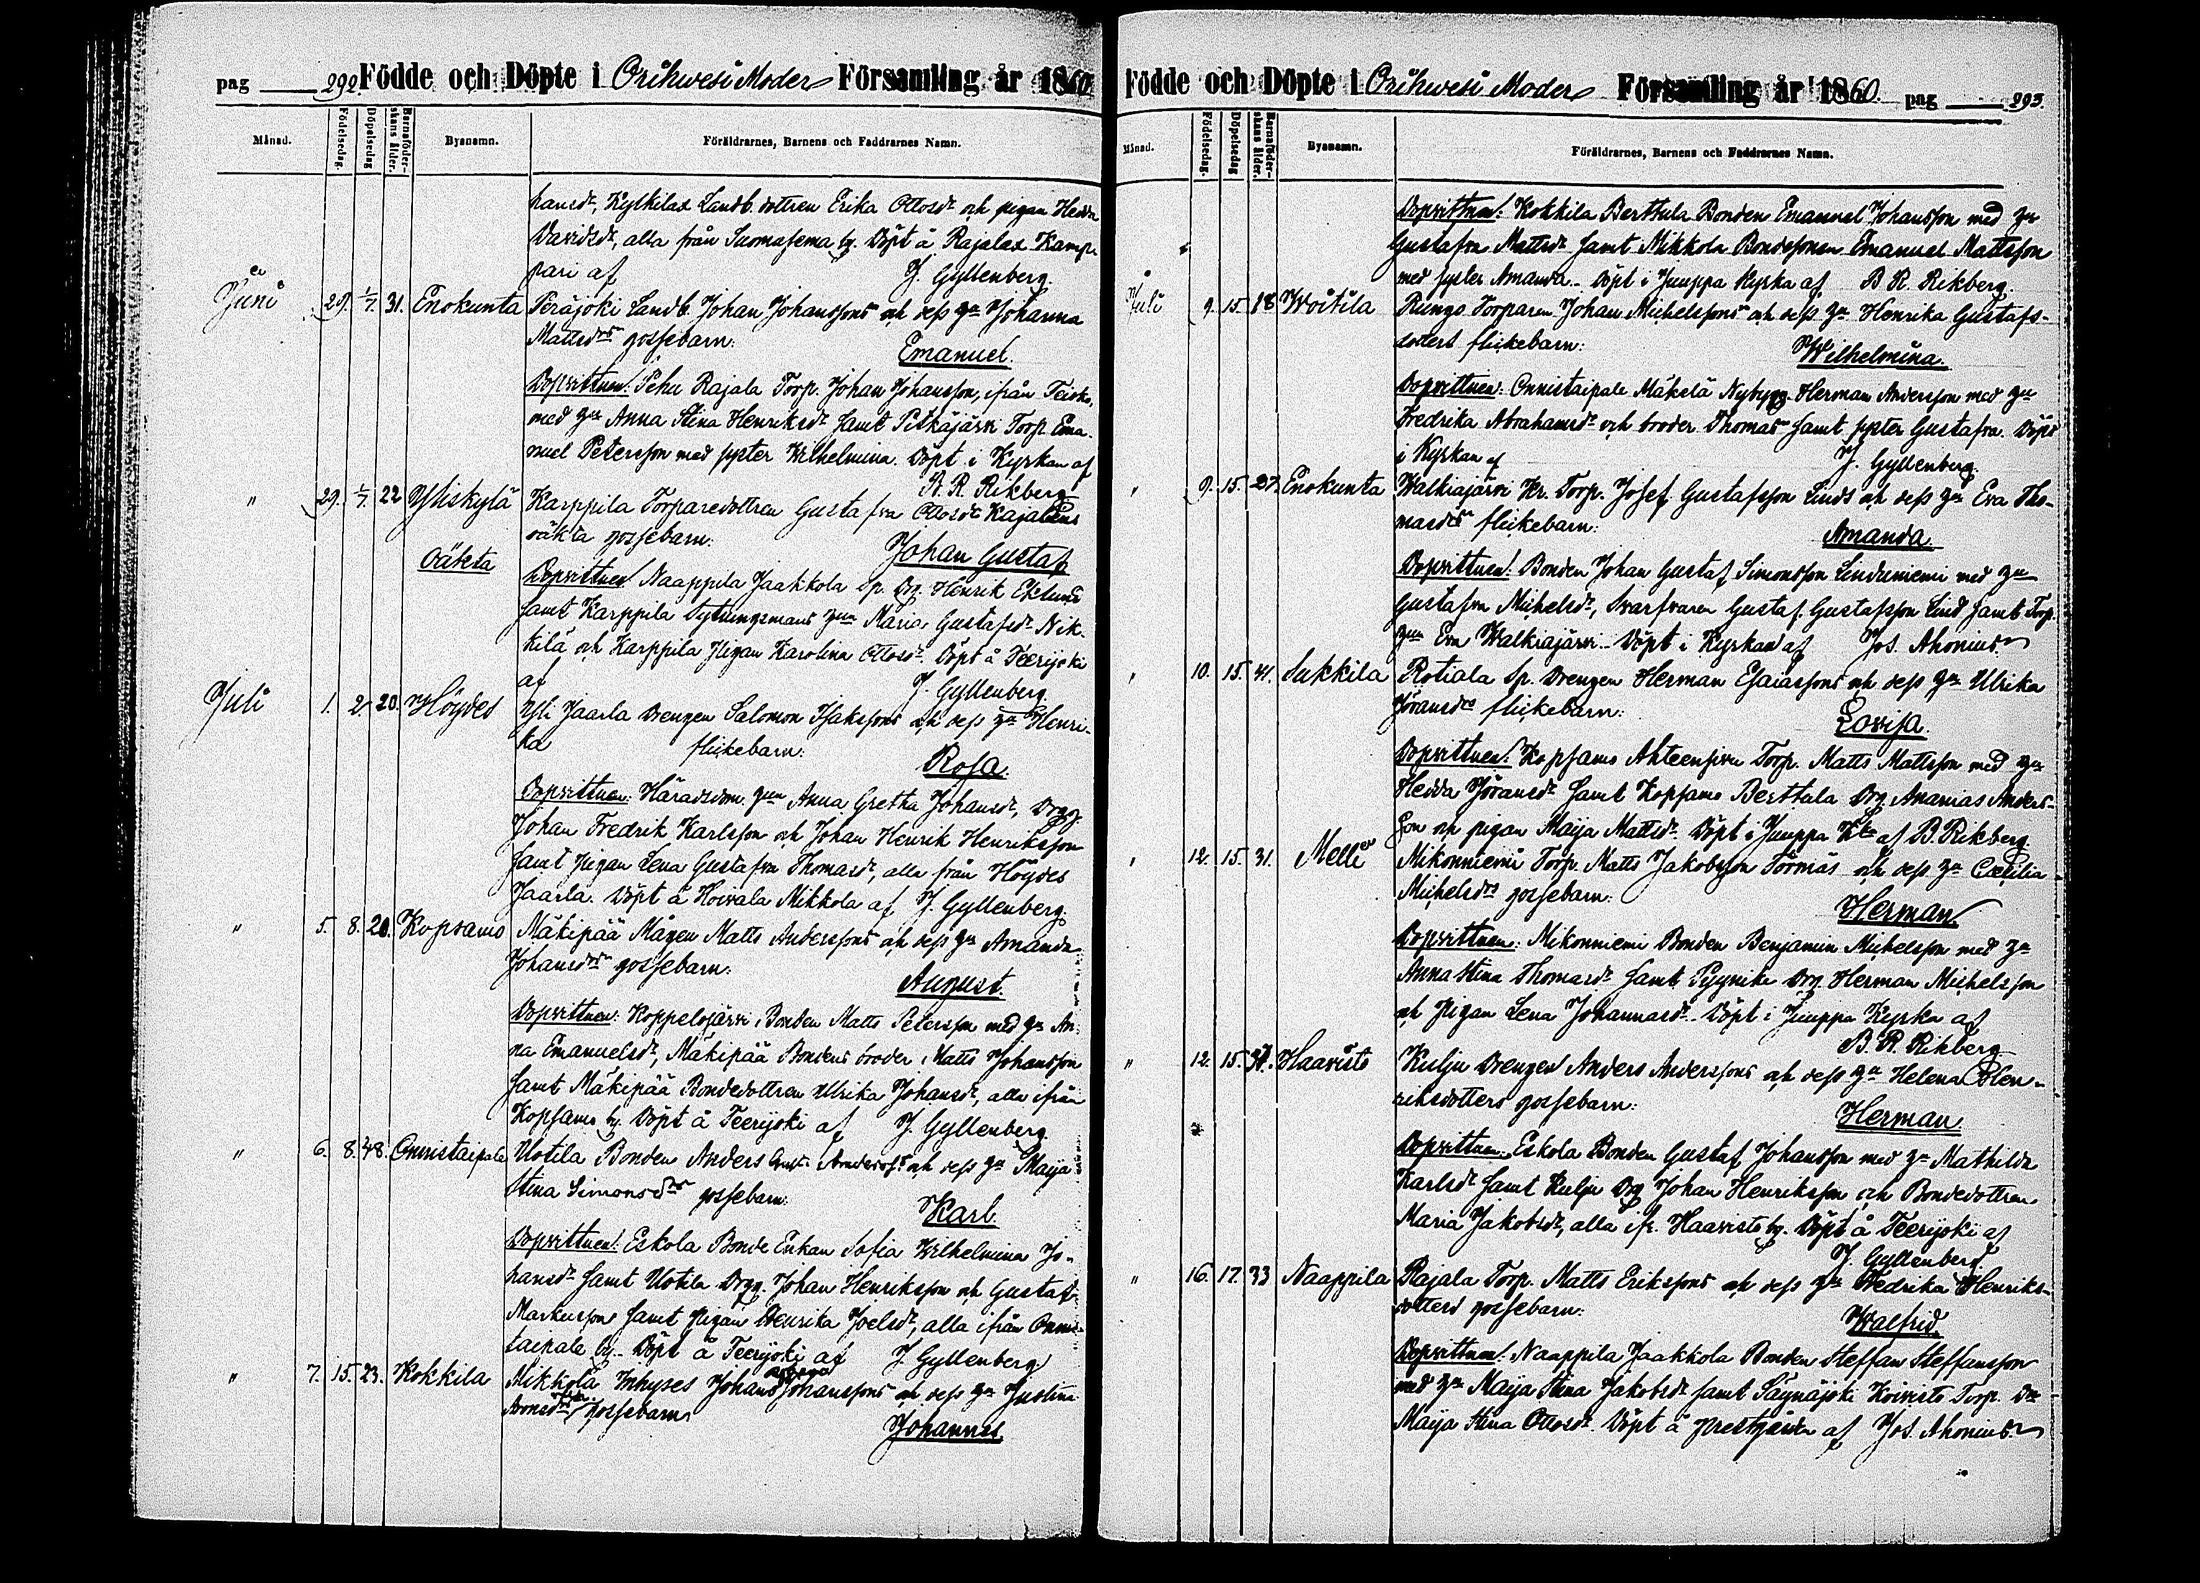 pag 292. Födde och Döpte i Orihwesi Moder Församling år 1860
Månad. Födelsedag. Döpelsedag Barnaföderskans ålder. Bysnamn. Föräldrarnes, Barnens och Faddrarnes Namn.
hansdr, Kyllilax Landb. dottren Erika Ottosdr och pigan Hedda
Davidsdr, alla från Suomasema by. Döpt å Rajalax Kamp-
pari af J. Gyllenberg.
Juni 29. 1/7. 31. Enokunta Peräjoki Landb. Johan Johanssons och dess Hu Johanna
Mattsdrs gossebarn: Emanuel.
Dopvittnen: Pehu Rajala Torp. Johan Johansson, ifrån Teisko,
med Hu Anna Stina Henriksdr samt Pitkäjärvi Torp. Ema-
nuel Petersson med syster Wilhelmina. Döpt i Kyrkan af
B. R. Rikberg
" 29. 1/7. 22 Yliskylä Karppila Torparedottren Gustafva Ottosdr Kajalens
oäkta gossebarn: Johan Gustaf
Oäkta
Dopvittnen: Naappila Jaakkola Sp. Drg. Henrik Eklund
samt Karppila Sytningsmans Hun Maria Gustafsdr Nik-
kilä och Karppila Pigan Karolina Ottosdr. Döpt å Teerijoki
af J. Gyllenberg.
Juli 1. 2. 20. Höydes Yli Jaarla Drengen Salomon Isakssons och dess Hu Henri-
ka flickebarn: Rosa.
Dopvittnen: Häradsdom. Hun Anna Gretha Johansdr, Drgg
Johan Fredrik Karlsson och Johan Henrik Henriksson
samt Pigan Lena Gustafva Thomasdr, alla från Höydes
Jaarla. Döpt å Hoivala Mikkola af J. Gyllenberg.
" 5. 8. 20. Kopsamo Mäkipää Mågen Matts Anderssons och dess Hu Amanda
Johansdrs gossebarn: August.
Dopvittnen: Koppelojärvi Bonden Matts Petersson med Hu An-
na Emanuelsdr, Mäkipää Bondens broder Matts Johansson
samt Mäkipää Bondedottren Ulrika Johansdr, alla ifrån
Kopsamo by. Döpt å Teerijoki af J. Gyllenberg.
" 6. 8. 48. Onnistaipale Uotila Bonden Anders Andersons och dess Hu Maija
Stina Simonsdrs gossebarn: Karl.
Dopvittnen: Eskola Bonde Enkan Sofia Wilhelmina Jo-
hansdr samt Uotila Drgg. Johan Henriksson och Gustaf
Markusson samt Pigan Henrika Joelsdr, alla ifrån Onnis-
taipale by. Döpt å Teerijoki af J. Gyllenberg
" 7. 15. 23. Kokkila Mikkola Inhyses Johan Johanssons och dess Hu Justina
gossebarn Johannes.
Födde och Döpte i Orihwesi Moder Församling år 1860. pag 293.
Månad. Födelsedag. Döpelsedag Barnaföderskans ålder. Bysnamn. Föräldrarnes, Barnens och Faddrarnes Namn.
Dopvittnen: Kokkila Berttula Bonden Emanuel Johansson med Hu
Gustafva Mattsdr samt Mikkola Bondesonen Emanuel Mattsson
med syster Amanda. Döpt i Juuppa Kyrka af B. R. Rikberg.
Juli 9. 15. 18 Woitila Rungo Torparen Johan Michelssons och dess Hu Henrika Gustafs-
dotters flickebarn: Wilhelmina.
Dopvittnen: Onnistaipale Mäkelä Nybygg. Herman Andersson med Hu
Fredrika Abrahamsdr och broder Thomas samt syster Gustafva. Döpt
i Kyrkan af J. Gyllenberg.
" 9. 15. 27. Enokunta Walkiajärvi Kr. Torp. Josef Gustafsson Linds och dess Hu Eva Tho-
masdrs flickebarn: Amanda.
Dopvittnen: Bonden Johan Gustaf Simonsson Linduniemi med Hu
Gustafva Michelsdr, Svarfvaren Gustaf Gustafsson Lind samt Torp.
Hun Eva Walkiajärvi. Döpt i Kyrkan af Jos. Ahonius.
" 10. 15. 41. Sukkila Rotiala Sp. Drengen Herman Esaiassons och dess Hu Ulrika
Jöransdrs flickebarn: Lovisa.
Dopvittnen: Kopsamo Ahteensivu Torp. Matts Mattsson med Hu
Hedda Jöransdr samt Kopsamo Berttula Drg. Ananias Anders-
son och pigan Maija Mattsdr. Döpt i Juuppa Kka af B. Rikberg.
" 12. 15. 31. Melli Mikonniemi Torp. Matts Jakobsson Törmäs och dess Hu Cæcilia
Michelsdrs gossebarn: Herman
Dopvittnen: Mikonniemi Bonden Benjamin Michelson med Hu
Anna Stina Thomasdr samt Pyyniki Drg. Herman Michelsson
och Pigan Lena Johannasdr. Döpt i Juuppa Kyrka af
B. R. Rikberg
" 12. 15. 37. Haavisto Kulju Drengen Anders Anderssons och dess Hu Helena Hen-
riksdotters gossebarn: Herman.
Dopvittnen: Eskola Bonden Gustaf Johansson med Hu Mathilda
Karlsdr samt Kulju Drg Johan Henriksson och Bondedottren
Maria Jakobsdr, alla ifr. Haavisto by. Döpt å Teerijoki af
J. Gyllenberg.
" 16. 17. 33 Naappila Rajala Torp. Matts Erikssons och dess Hu Fredrika Henriks-
dotters gossebarn: Walfrid.
Dopvittnen: Naappila Jaakkola Bonden Steffan Steffansson
med Hu Maija Stina Jakobsdr samt Säynäjoki Koivisto Torp. Dr
Maija Stina Ottosdr. Döpt å prestgården af Jos. Ahonius.